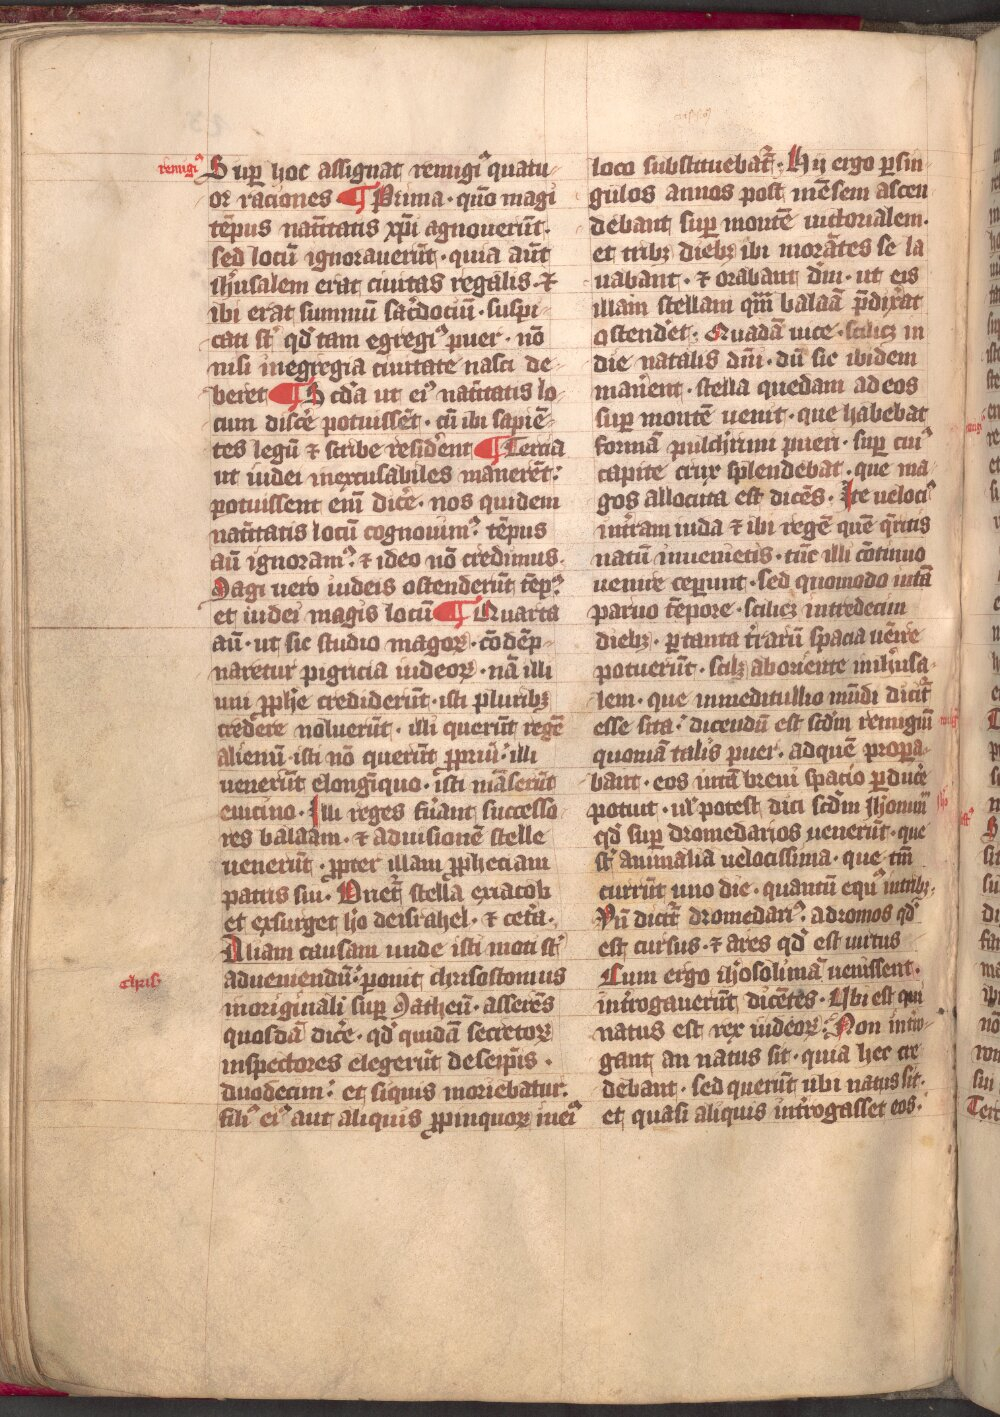 remigiꝰ
Sup̄ hoc assignat remigiꝰ quatu-
or raciones ¶ Prima · quō magi
tēpus natītatis xp̄i agnouerūt·
sed locū ignorauerūt · quia aūt
ih̄usalem erat ciuitas regalis · ⁊
ibi erat summū sac̄dociū · suspi-
cati st̄ qd̄ tam egregiꝰ puer · nō
nisi in egregia ciuitate nasci de-
beret ¶ Scd̄a ut eiꝰ natītatis lo-
cum disc̄e potuissēt · cū ibi sapiē-
tes legū ⁊ scribe resident ¶ Tercia
ut iudei inexcusabiles manerēt:
potuissent eīm dic̄e · nos quidem
natītatis locū cognouimꝰ tēpus
aū ignoramꝰ ⁊ ideo nō credimus·
Magi uero iudeis ostenderūt tēpꝰ
et iudei magis locū ¶ Quarta
aū · ut sic studio magoꝝ · cōdēp-
naretur pigricia iudeoꝝ · nā illi
uni ꝓph̄e crediderūt · isti pluribꝫ
credere noluerūt · illi querūt regē
alienū isti nō querūt ꝓpriū · illi
uenerūt elonginquo · isti māserūt
euicino · Illi reges fūant successo
res balaam · ⁊ aduisionē stelle
uenerūt · ꝓpter illam ꝓpheciam
patris sui · Oriet̄ stella exiacob
et exsurget h̄o deisrahel · ⁊ cet̄a ·
Aliam causam unde isti moti st̄
adueniendū · ponit chrisostomus
Chriso
inoriginali sup̄ Matheū · asserēs
quosdā dic̄e · qd̄ quidā secretoꝝ
inspectores elegerūt deseip̄is ·
duodecim · et siquis moriebatur·
filiꝰ eiꝰ aut aliquis ꝓpinquoꝝ ineiꝰ
loco substituebat̄ · Hij ergo ꝑsin-
gulos annos post mēsem ascen
debant sup̄ montē uictorialem·
et tribꝫ diebꝫ ibi morātes se la
uabant · ⁊ orabant dm̄ · ut eis
illam stellam qm̄ balaā p̄dix̄at
ostend̄et · Quadā uice · scilicꝫ in
die natalis dm̄ · dū sic ibidem
man̄ent · stella quedam ad eos
sup̄ montē uenit · que habebat
formā pulch̄rimi pueri · sup̄ cuiꝰ
capite crux splendebat · que ma-
gos allocuta est dicēs · Ite uelociꝰ
int̄ram iuda ⁊ ibi regē quē q̄ritis
natū inuenietis · tūc illi cōtinuo
uenire ceꝑunt · sed quomodo intā
paruo tēpore · scilicꝫ intredecim
diebꝫ · ꝑtanta t̄rarū spacia uēire
potuerūt · scilꝫ aboriente inih̄usa-
lem · que inmeditullio mūdi dicit̄
esse sita · dicendū est scd̄m remigiū
quoniā talis puer · adquē propa-
bant · eos intā breui spatio ꝑduc̄e
potuit · ul̄ potest dici scd̄m Ih̄onimū
qd̄ sup̄ dromedarios uenerūt · que
st̄ animalia uelocissima · que tm̄
currūt uno die · quantū equꝰ intribꝫ·
Vn̄ dicit̄ dromedariꝰ · adromos qd̄
est cursus · ⁊ ares qd̄ est uirtus
Cum ergo ih̄osolimā uenissent·
int̄rogauerūt dicētes · Vbi est qui
natus est rex iudeoꝝ · Non int̄ro-
gant an natus sit · quia hec cre
debant · sed querūt ubi natus sit·
et quasi aliquis int̄rogasset eos: